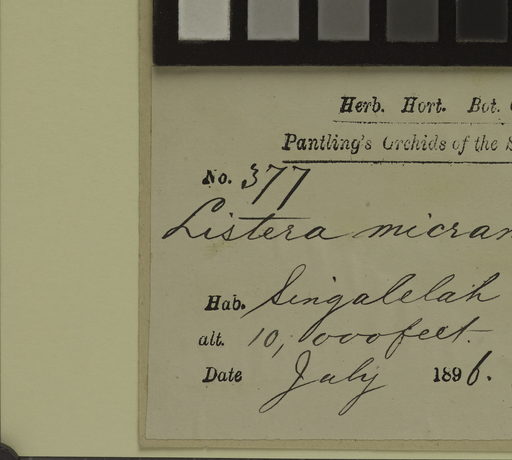 Herb. Hort. Bot.
Pantling's Orchids of the S
No. 377
Listera micran
Hab. Singalelah
alt. 10,000 feet.
Date July 1896.